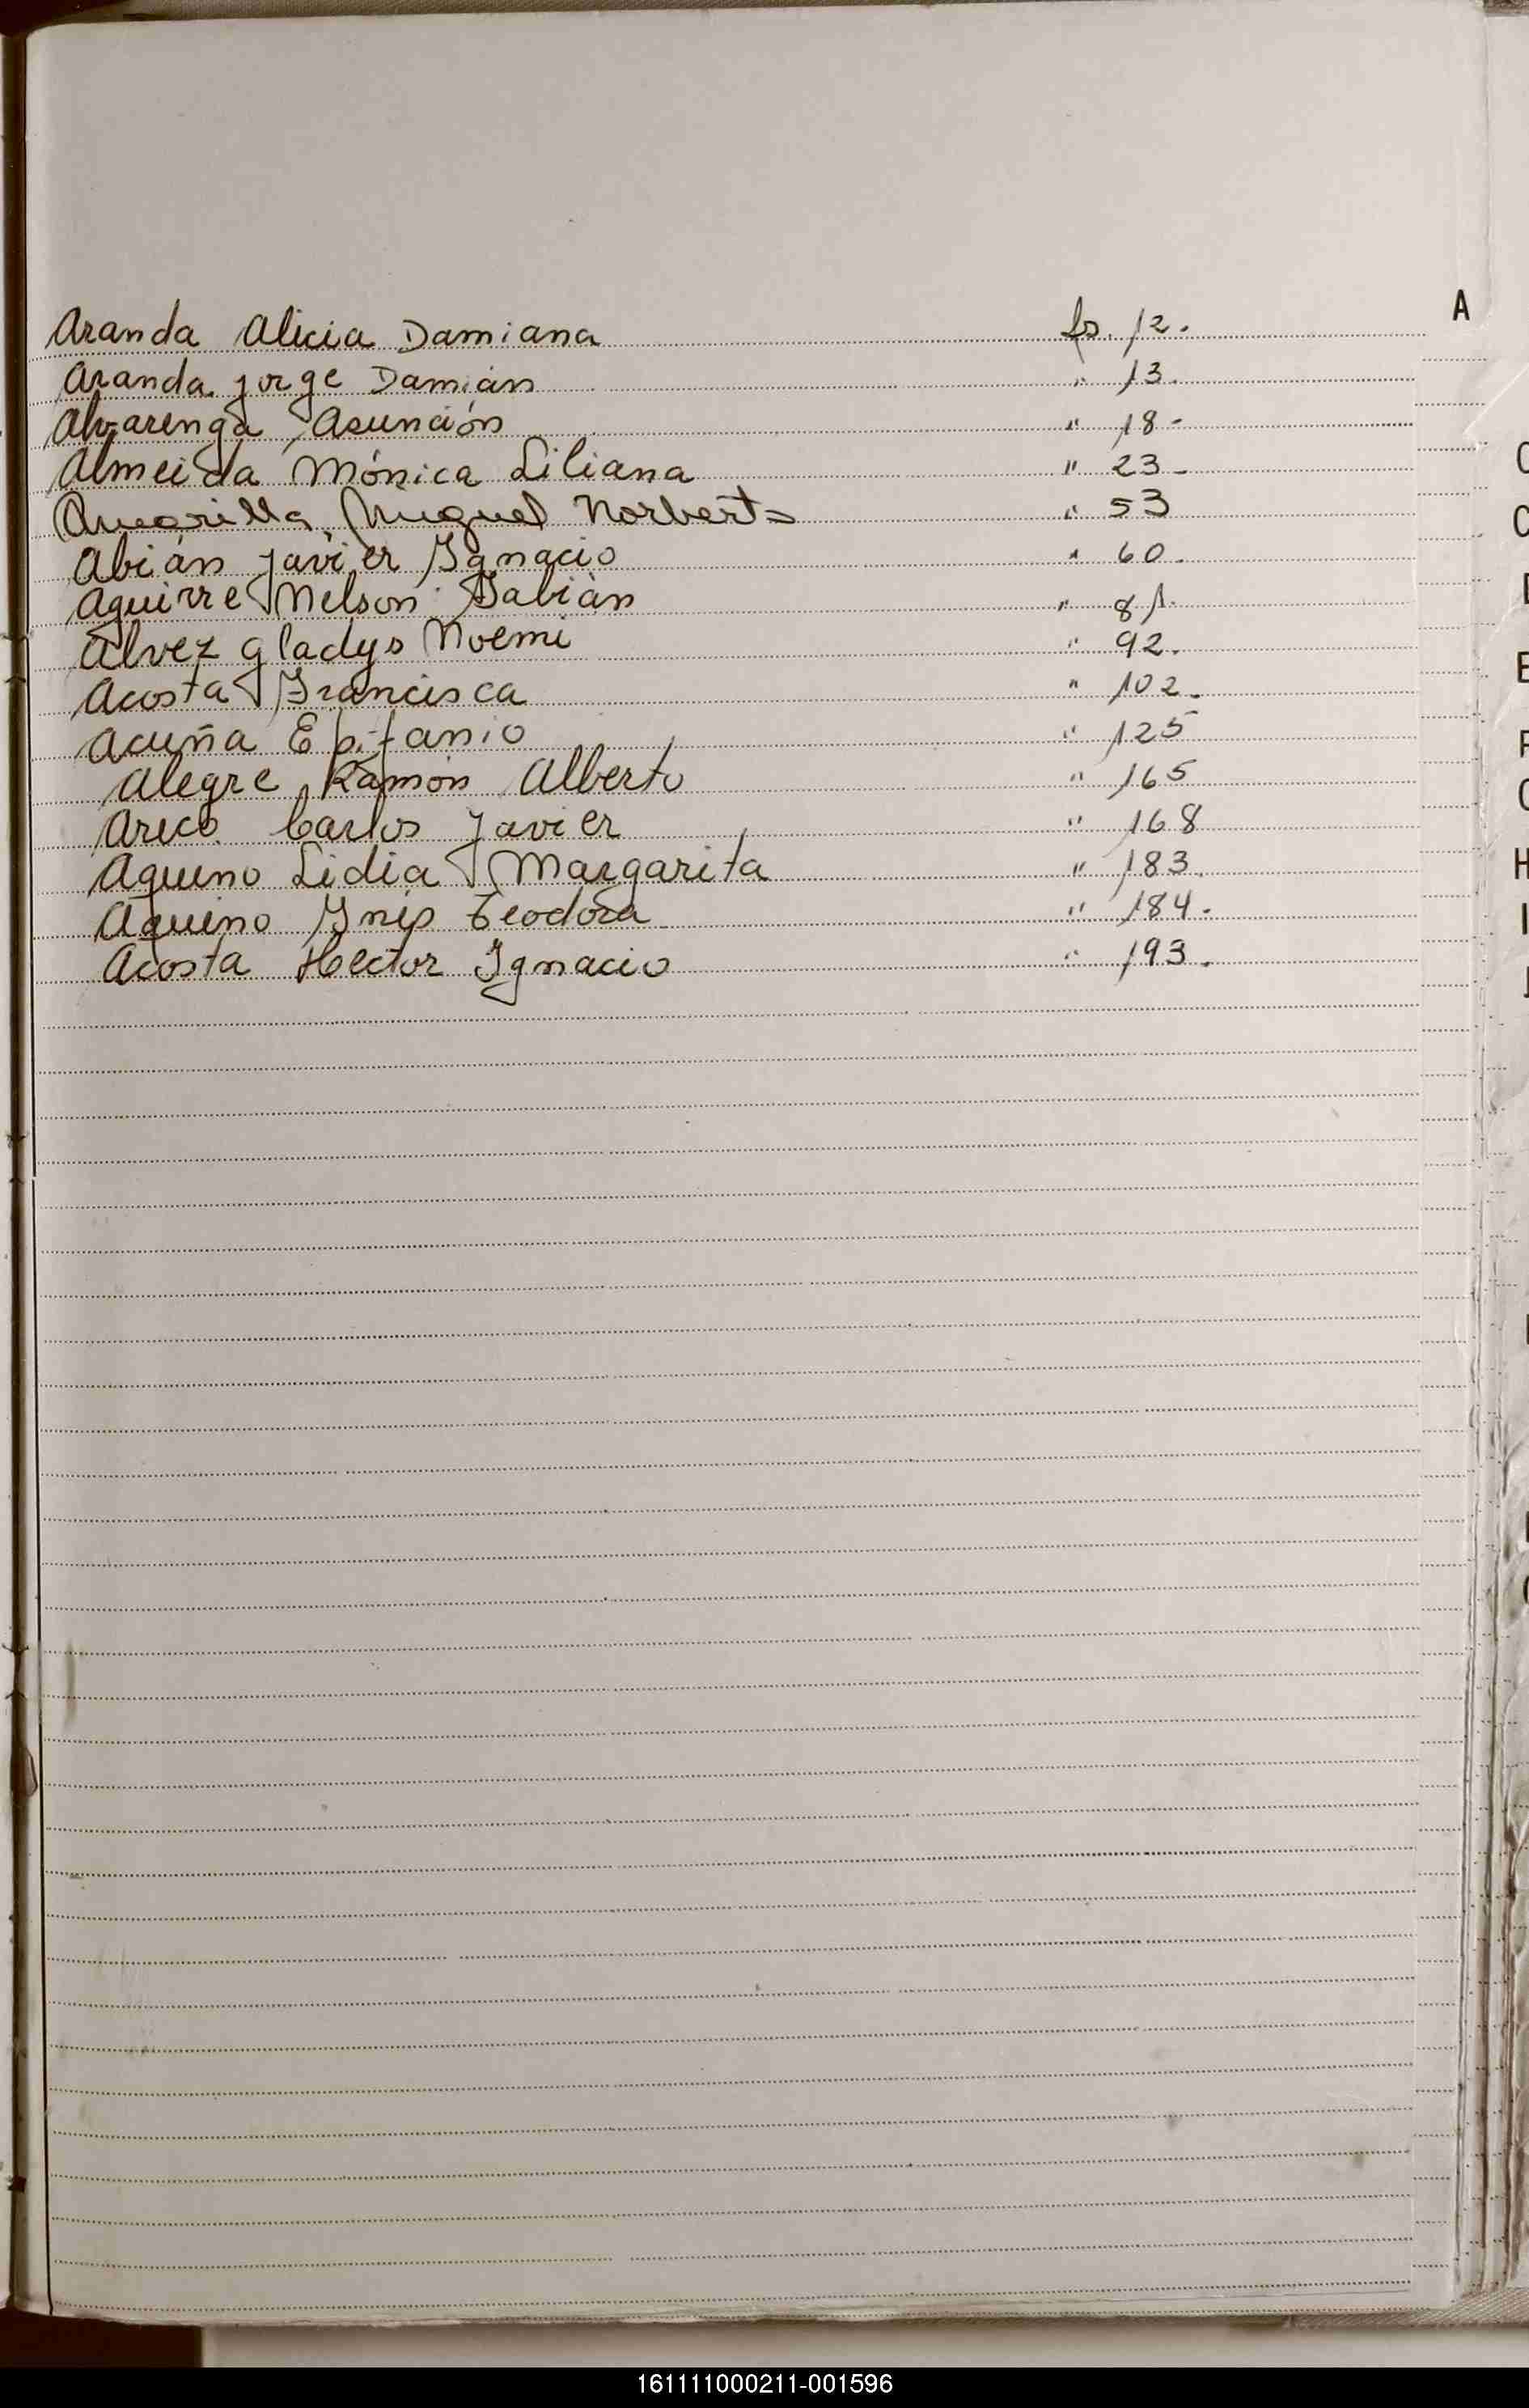 A
Aranda Alicia Damiana fs. 12.
Aranda Jorge Damián " 13.
Alvarenga Asunción " 18-
Almeida Mónica Liliana " 23-
Miguel Norberto " 53
Abián Javier Ignacio " 60.
Aguirre Nelson Fabián " 81.
Alvez Gladys Noemi " 92.
Acosta Francisca " 102.
Acuña Epifanio " 125
Alegre Ramón Alberto " 165
Areco Carlos Javier " 168
Aquino Lidia Margarita " 183.
Aquino Inés Teodora " 184.
Acosta Hector Ignacio " 193.
161111000211-001596